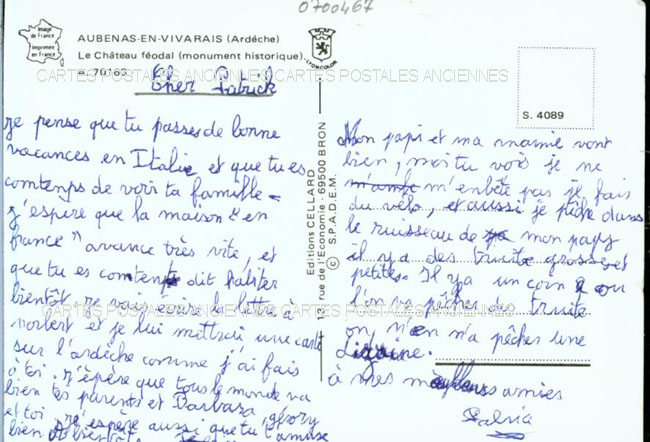 0700467
Image
de France
Imprimée
en France
AUBENAS-EN-VIVARAIS (Ardèche)
Le Château féodal (monument historique)
LYONCOLOR
CARTES POSTALES ANCIENNES CARTES POSTALES ANCIENNES
S. 4089
Cher Patrick
je pense que tu passes de bonne
vacances en Italie et que tu es
comtemps de voir ta famille
j'espère que la maison "en
france" avance très vite, et
que tu es content dit habiter
bientôt je vais écrire la lettre à
norbert et je lui mettrai une carte
sur l'ardèche comme j'ai fais
à toi. j'épère que tous le monde va
bien tes parents et Barbara,
et toi j'espère aussi que tu t'amuse
bien
Editions CELLARD
13, rue de l'Economie - 69500 BRON
© S.P.A.D.E.M.
Mon papi et ma mamie vont
bien, moi tu vois je ne
m'enbête pas je fais
du vélo, et aussi je pêche dans
le ruisseau de mon papy
il y a des truite grosse et
petites. Il y a un coin ou
l'on va pêcher des truite
on n'en n'a pêcher une
à mes amies
CARTES POSTALES ANCIENNES CARTES POSTALES ANCIENNES